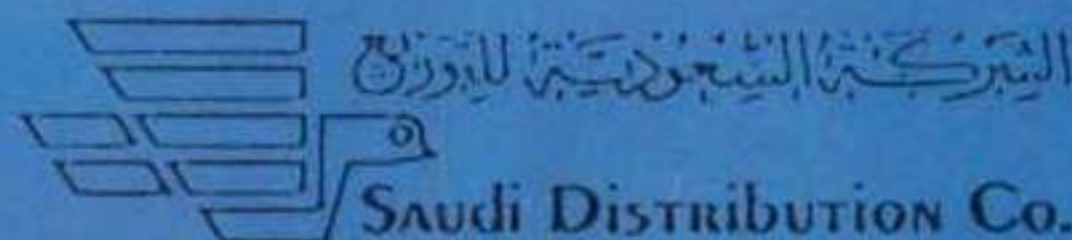 الشركة السعودية للتوزيع
Saudi Distribution Co.